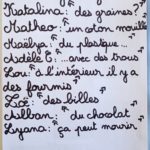 Katalina : des graines ?
Matheo : un coton mouillé
Maelya : du plastique...
Adèle E : ...avec des trous
Lou : à l'intérieur, il y a
des fourmis
Zoé : des billes
Alban : du chocolat
Lyana : ça peut mourir